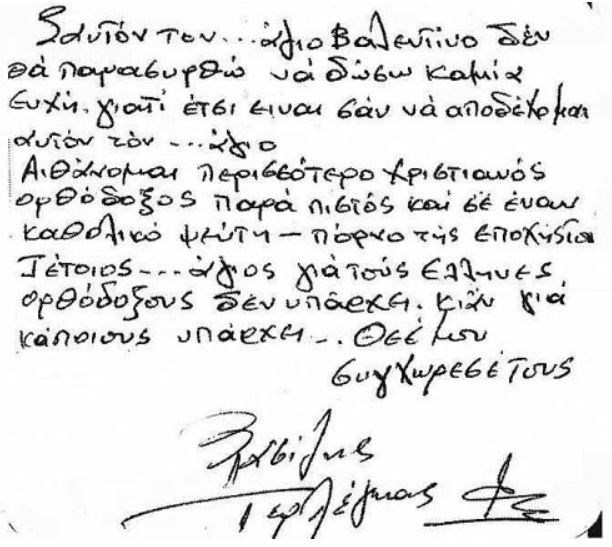 Σ'αυτόν τον... άγιο Βαλεντίνο δέν
θά παρασυρθώ νά δώσω καμία
ευχή. γιατί έτσι είναι σάν νά αποδέχομαι
αυτόν τόν ... άγιο
Αιθάνομαι περισσότερο χριστιανός
ορθόδοξος παρά πιστός καί σέ έναν
καθολικό ψεύτη – πόρνο τής εποχής
Τέτοιος... άγιος γιά τούς Ελληνες
ορθόδοξους δέν υπάρχει. κιάν γιά
κάποιους υπάρχει... Θεέ μου
συγχώρεσέ τους
Βασίλης
Τερλέγκας